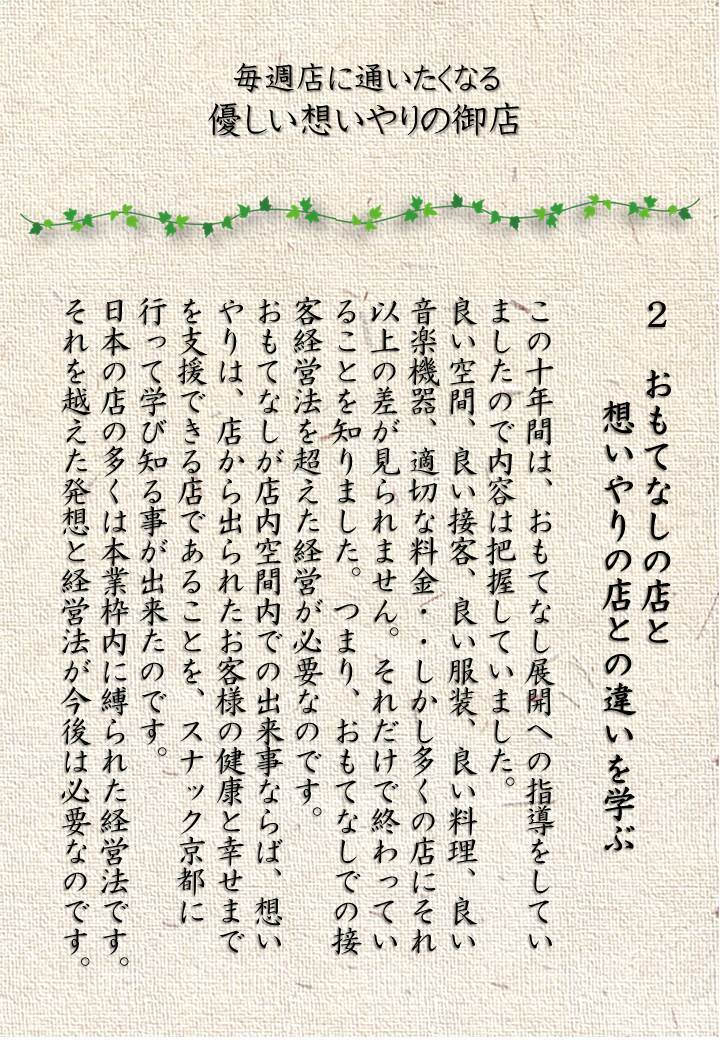 毎週店に通いたくなる
優しい想いやりの御店
２　おもてなしの店と
想いやりの店との違いを学ぶ
この十年間は、おもてなし展開への指導をしてい
ましたので内容は把握していました。
良い空間、良い接客、良い服装、良い料理、良い
音楽機器、適切な料金・・しかし多くの店にそれ
以上の差が見られません。それだけで終わってい
ることを知りました。つまり、おもてなしでの接
客経営法を超えた経営が必要なのです。
おもてなしが店内空間内での出来事ならば、想い
やりは、店から出られたお客様の健康と幸せまで
を支援できる店であることを、スナック京都に
行って学び知る事が出来たのです。
日本の店の多くは本業枠内に縛られた経営法です。
それを越えた発想と経営法が今後は必要なのです。